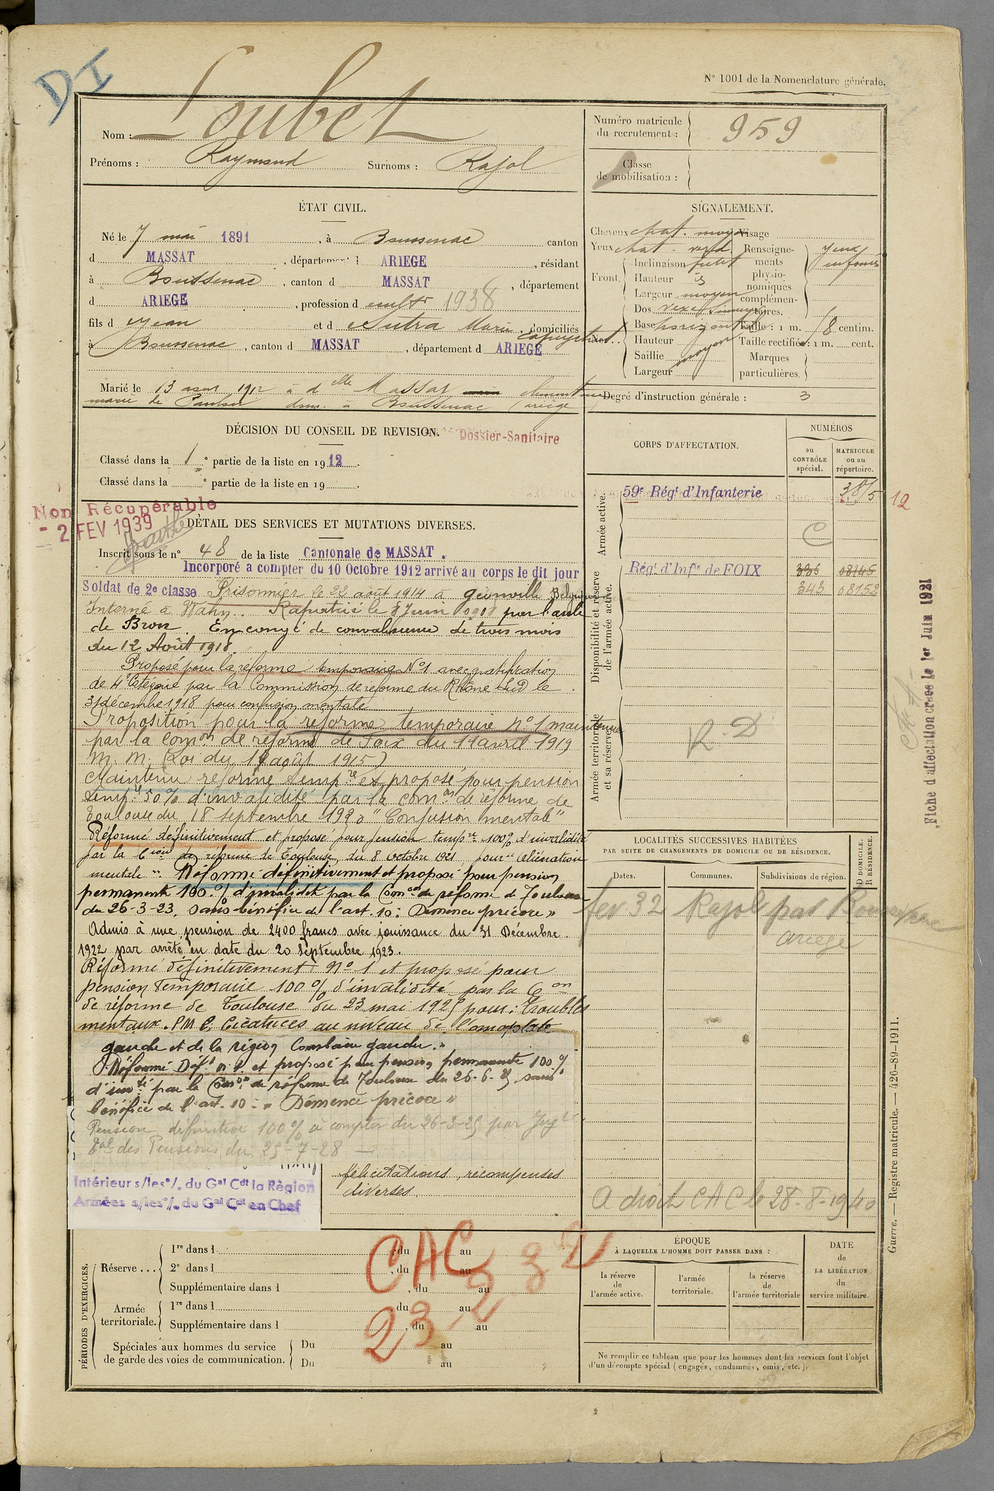 DI
N° 1001 de la Nomenclature générale.
Nom : Loubet
Prénoms : Raymond Surnoms : Rajol
Numéro matricule du recrutement : 959
Classe de mobilisation :
ÉTAT CIVIL.
Né le 7 mai 1891, à Boussenac canton
d MASSAT, département d ARIEGE, résidant
à Boussenac, canton d MASSAT, département
d ARIEGE, profession d cultr 1938
fils d Jean et d Sutra Marie, domiciliés
à Boussenac, canton d MASSAT, département d ARIEGE
Marié le 13 1912 à dlle Massat
dom. à Boussenac Ariège
SIGNALEMENT.
Cheveux chat. moy. Visage
Yeux chat.
Front. Inclinaison
Hauteur
Largeur moyen
Dos
Base horizontal
Hauteur
Saillie moyen
Largeur
Renseignements physionomiques complémentaires. yeux enfoncés
Taille : 1 m. 8 centim.
Taille rectifiée : 1 m. cent.
Marques particulières.
Degré d'instruction générale : 3
DÉCISION DU CONSEIL DE REVISION.
Dossier-Sanitaire
Classé dans la 1e partie de la liste en 1912.
Classé dans la e partie de la liste en 19
Non Récupérable
- 2 FEV 1939
DÉTAIL DES SERVICES ET MUTATIONS DIVERSES.
Inscrit sous le n° 48 de la liste Cantonale de MASSAT.
Incorporé à compter du 10 Octobre 1912 arrivé au corps le dit jour
Soldat de 2e classe Prisonnier le 22 août 1914 à Belgique
Interné à Wahn. Rapatrié le Juin 1918 par l'asile
de Bron En congé de convalescence de trois mois
du 12 Août 1918.
Proposé pour la réforme temporaire N°1 avec gratification
de 4e Catégorie par la Commission de réforme du Rhône Sud le
31 décembre 1918 pour confusion mentale
Proposition pour la réforme temporaire n° 1 maintenue
par la Comon de réforme de Foix du 11 avril 1919
M. M. (Loi du 1 août 1915)
Maintenu réformé temp.re et proposé pour pension
temp.re 50 % d'invalidité par la comon de réforme de
Toulouse du 18 septembre 1920 "Confusion mentale"
Réformé définitivement et proposé pour pension temp.re 100% d'invalidité
par la Cion de réforme de Toulouse du 8 octobre 1921 pour "aliénation
mentale". Réformé définitivement et proposé pour pension
permanente 100 % d'invalidité par la Comon de réforme de Toulouse
du 26-3-23, sans bénéfice de l'art. 10 : "Démence précoce"
Admis à une pension de 2400 francs avec jouissance du 31 Décembre
1922 par arrêté en date du 20 Septembre 1923.
Réformé définitivement N° 1 et proposé pour
pension temporaire 100 % d'invalidité par la Con
de réforme de Toulouse du 23 mai 192 pour : troubles
mentaux. P.M.C. Cicatrices au niveau de l'omoplate
gauche et de la région lombaire gauche."
Réformé Déft n° 1 et proposé pour pension permanente 100 %
d'invté par la Comon de réforme de Toulouse du 26-6- sans
bénéfice de l'art. 10 : "Démence précoce"
Pension définitive 100 % à compter du 26-3-25 par
des Pensions du 23-7-28
Intérieur s/les o/. du Gal Cdt la Région
Armées s/les o/. du Gal Cdt en Chef
félicitations, récompenses
diverses.
CORPS D'AFFECTATION.
NUMÉROS
au CONTRÔLE spécial.
MATRICULE ou au répertoire.
Armée active.
59e Régt d'Infanterie
12
C
Disponibilité et réserve de l'armée active.
Régt d'Infie de FOIX
343 08152
Armée territoriale et sa réserve.
R.D
Fiche d'affectation créée le 1er Juin 1921
LOCALITÉS SUCCESSIVES HABITÉES
PAR SUITE DE CHANGEMENTS DE DOMICILE OU DE RÉSIDENCE.
Dates. Communes. Subdivisions de région. D DOMICILE. R RÉSIDENCE.
fev 32 Rajol par Boussenac
Ariège
A droit CAC le 28-8-1940
Guerre. — Registre matricule. — 426-89-1911.
PÉRIODES D'EXERCICES.
Réserve... 1re dans l , du au
2e dans l , du au
Supplémentaire dans l , du au
Armée territoriale. 1re dans l , du au
Supplémentaire dans l , du au
Spéciales aux hommes du service de garde des voies de communication. Du au
Du au
CAC
23-2
32
ÉPOQUE
À LAQUELLE L'HOMME DOIT PASSER DANS :
la réserve de l'armée active.
l'armée territoriale.
la réserve de l'armée territoriale
DATE de LA LIBÉRATION du service militaire.
Ne remplir ce tableau que pour les hommes dont les services font l'objet
d'un décompte spécial (engagés, condamnés, omis, etc.).
2